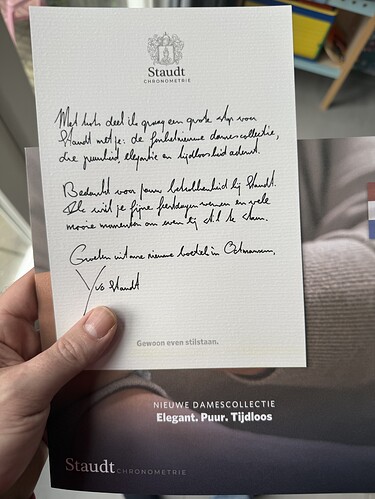 Staudt
CHRONOMETRIE
Met trots deel ik graag een grote stap voor
Staudt met je: de fonkelnieuwe damescollectie,
die puurheid, elegantie en tijdloosheid ademt.
Bedankt voor jouw betrokkenheid bij Staudt.
Ik wil je fijne feestdagen wensen en vele
mooie momenten om even bij stil te staan.
Groeten uit onze nieuwe boetiek in Ootmarsum,
Yvo Staudt
Gewoon even stilstaan.
NIEUWE DAMESCOLLECTIE
Elegant. Puur. Tijdloos
Staudt CHRONOMETRIE